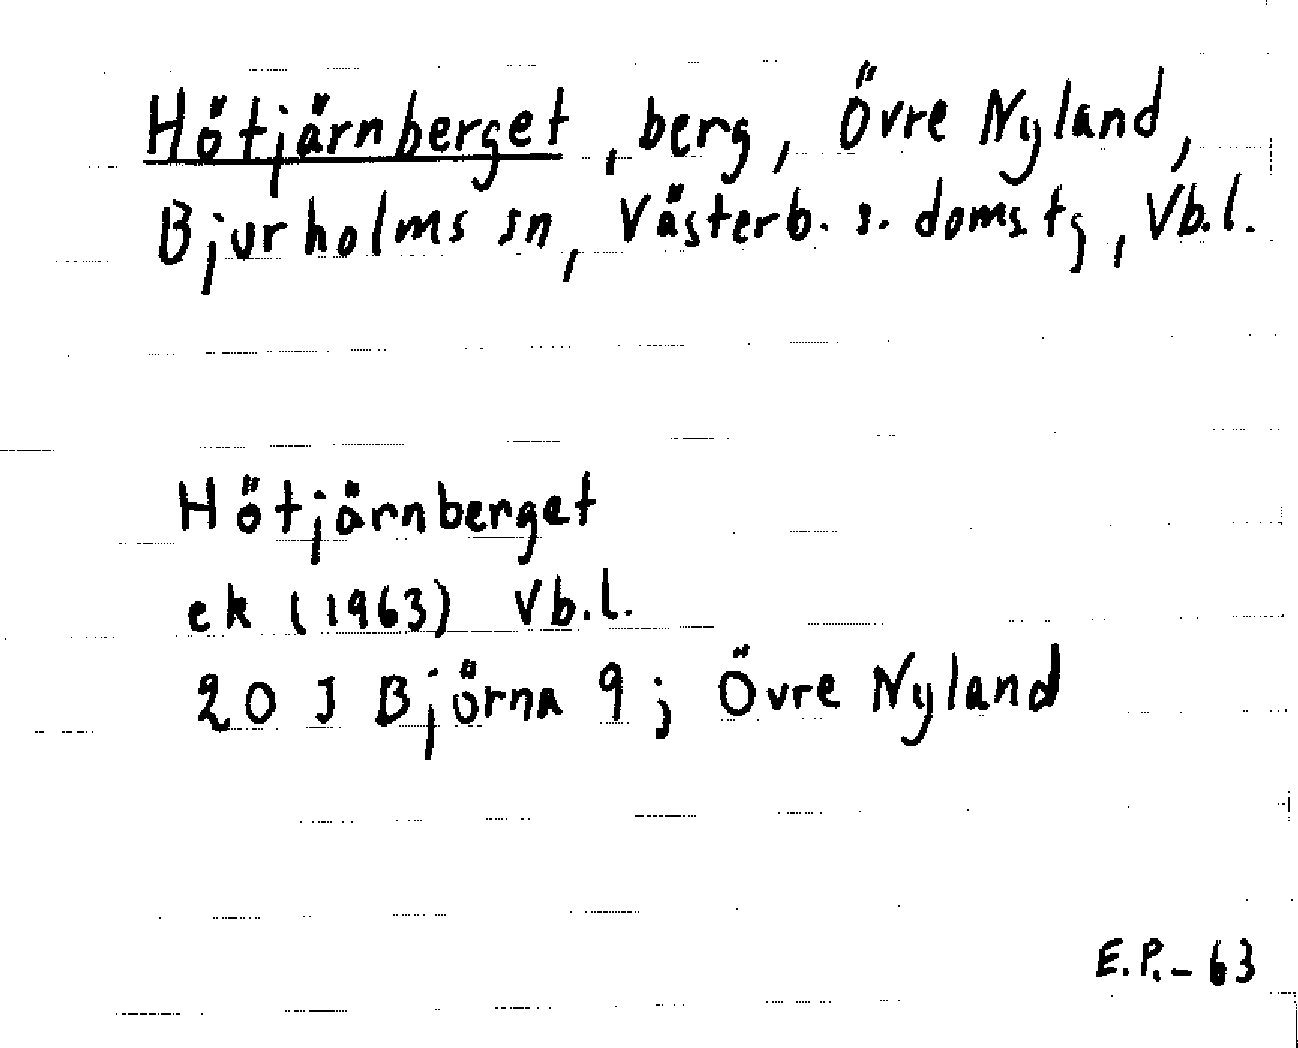 Hötjärnberget, berg, Övre Nyland,
Bjurholms sn, Västerb. s. domstg, Vb.l.
Hötjärnberget
ek (1963) Vb.l.
20 J Björna 9; Övre Nyland
E.P.-63